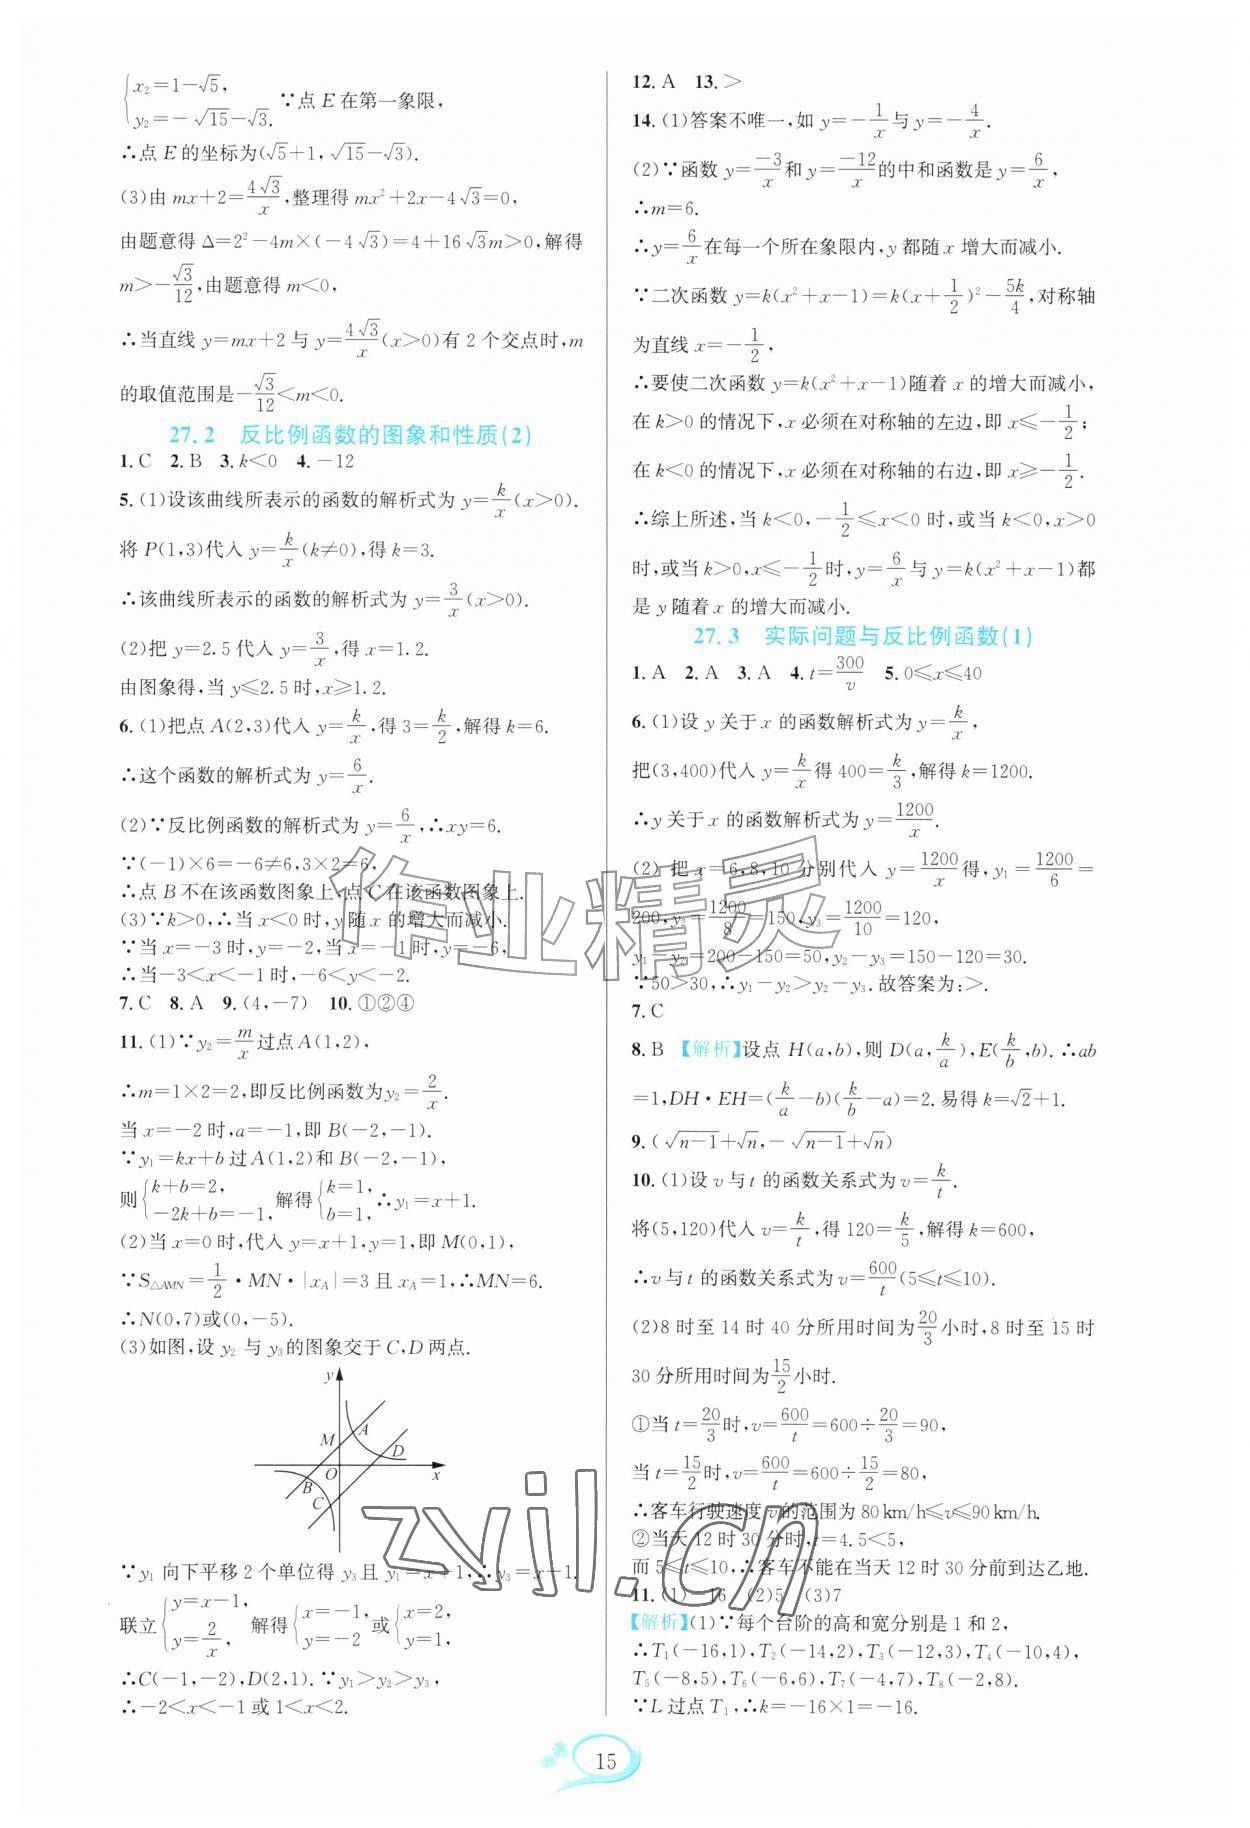 {x₂=1-√5, y₂=-√15-√3. ∵点 E 在第一象限,
∴点 E 的坐标为(√5+1, √15-√3).
(3)由 mx+2=4√3/x,整理得 mx²+2x-4√3=0,
由题意得 Δ=2²-4m×(-4√3)=4+16√3m>0,解得
m>-√3/12,由题意得 m<0,
∴当直线 y=mx+2 与 y=4√3/x(x>0)有 2 个交点时,m
的取值范围是-√3/12<m<0.
27.2 反比例函数的图象和性质(2)
1. C 2. B 3. k<0 4. -12
5. (1)设该曲线所表示的函数的解析式为 y=k/x(x>0).
将 P(1,3)代入 y=k/x(k≠0),得 k=3.
∴该曲线所表示的函数的解析式为 y=3/x(x>0).
(2)把 y=2.5 代入 y=3/x,得 x=1.2.
由图象得,当 y≤2.5 时,x≥1.2.
6. (1)把点 A(2,3)代入 y=k/x,得 3=k/2,解得 k=6.
∴这个函数的解析式为 y=6/x.
(2)∵反比例函数的解析式为 y=6/x,∴xy=6.
∵(-1)×6=-6≠6,3×2=6,
∴点 B 不在该函数图象上,点 C 在该函数图象上.
(3)∵k>0,∴当 x<0 时,y 随 x 的增大而减小.
∵当 x=-3 时,y=-2,当 x=-1 时,y=-6,
∴当-3<x<-1 时,-6<y<-2.
7. C 8. A 9. (4,-7) 10. ①②④
11. (1)∵y₂=m/x过点 A(1,2),
∴m=1×2=2,即反比例函数为y₂=2/x.
当 x=-2 时,a=-1,即 B(-2,-1).
∵y₁=kx+b 过 A(1,2)和 B(-2,-1),
则{k+b=2, -2k+b=-1, 解得{k=1, b=1, ∴y₁=x+1.
(2)当 x=0 时,代入 y=x+1,y=1,即 M(0,1),
∵S△AMN=1/2·MN·|xA|=3 且 xA=1,∴MN=6.
∴N(0,7)或(0,-5).
(3)如图,设 y₂ 与 y₃的图象交于 C,D 两点.
y
M
A
D
O
x
B
C
∵y₁ 向下平移 2 个单位得 y₃且 y₁=x+1,∴y₃=x-1.
联立{y=x-1, y=2/x, 解得{x=-1, y=-2 或{x=2, y=1,
∴C(-1,-2),D(2,1). ∵y₁>y₂>y₃,
∴-2<x<-1 或 1<x<2.
12. A 13. >
14. (1)答案不唯一,如 y=-1/x与 y=-4/x.
(2)∵函数 y=-3/x和 y=-12/x的中和函数是 y=6/x,
∴m=6.
∴y=6/x在每一个所在象限内,y 都随 x 增大而减小.
∵二次函数 y=k(x²+x-1)=k(x+1/2)²-5k/4,对称轴
为直线 x=-1/2,
∴要使二次函数 y=k(x²+x-1)随着 x 的增大而减小,
在 k>0 的情况下,x 必须在对称轴的左边,即 x≤-1/2;
在 k<0 的情况下,x 必须在对称轴的右边,即 x≥-1/2.
∴综上所述,当 k<0,-1/2≤x<0 时,或当 k<0,x>0
时,或当 k>0,x≤-1/2时,y=6/x与 y=k(x²+x-1)都
是 y 随着 x 的增大而减小.
27.3 实际问题与反比例函数(1)
1. A 2. A 3. A 4. t=300/v 5. 0≤x≤40
6. (1)设 y 关于 x 的函数解析式为 y=k/x,
把(3,400)代入 y=k/x得 400=k/3,解得 k=1200.
∴y 关于 x 的函数解析式为 y=1200/x.
(2) 把 x=6,8,10 分别代入 y=1200/x得,y₁=1200/6=
200,y₂=1200/8=150,y₃=1200/10=120,
y₁-y₂=200-150=50,y₂-y₃=150-120=30.
∵50>30,∴y₁-y₂>y₂-y₃.故答案为:>.
7. C
8. B 【解析】设点 H(a,b),则 D(a,k/a),E(k/b,b). ∴ab
=1,DH·EH=(k/a-b)(k/b-a)=2. 易得 k=√2+1.
9. (√n-1+√n,-√n-1+√n)
10. (1)设 v 与 t 的函数关系式为 v=k/t.
将(5,120)代入 v=k/t,得 120=k/5,解得 k=600,
∴v 与 t 的函数关系式为 v=600/t(5≤t≤10).
(2)8 时至 14 时 40 分所用时间为20/3小时,8 时至 15 时
30 分所用时间为15/2小时.
①当 t=20/3时,v=600/t=600÷20/3=90,
当 t=15/2时,v=600/t=600÷15/2=80,
∴客车行驶速度 v的范围为 80 km/h≤v≤90 km/h.
②当天 12 时 30 分时,t=4.5<5,
而 5≤t≤10,∴客车不能在当天 12 时 30 分前到达乙地.
11. (1)-16 (2)5 (3)7
【解析】(1)∵每个台阶的高和宽分别是 1 和 2,
∴T₁(-16,1),T₂(-14,2),T₃(-12,3),T₄(-10,4),
T₅(-8,5),T₆(-6,6),T₇(-4,7),T₈(-2,8).
∵L 过点 T₁,∴k=-16×1=-16.
作业精灵
zyjl.cn
15